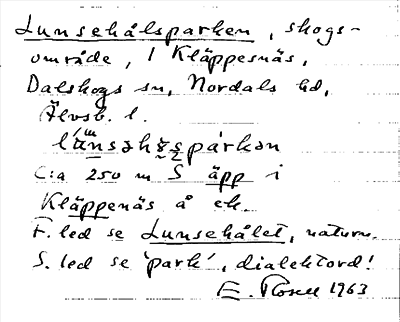 Lunsehålsparken, skogs-
område, i Kläppesnäs,
Dalskogs sn, Nordals hd,
Älvsb. l.
C:a 250 m S äpp i
Kläppenäs å ek.
F. led se Lunsehålet, naturn.
S. led se 'park', dialektord!
E. 1963